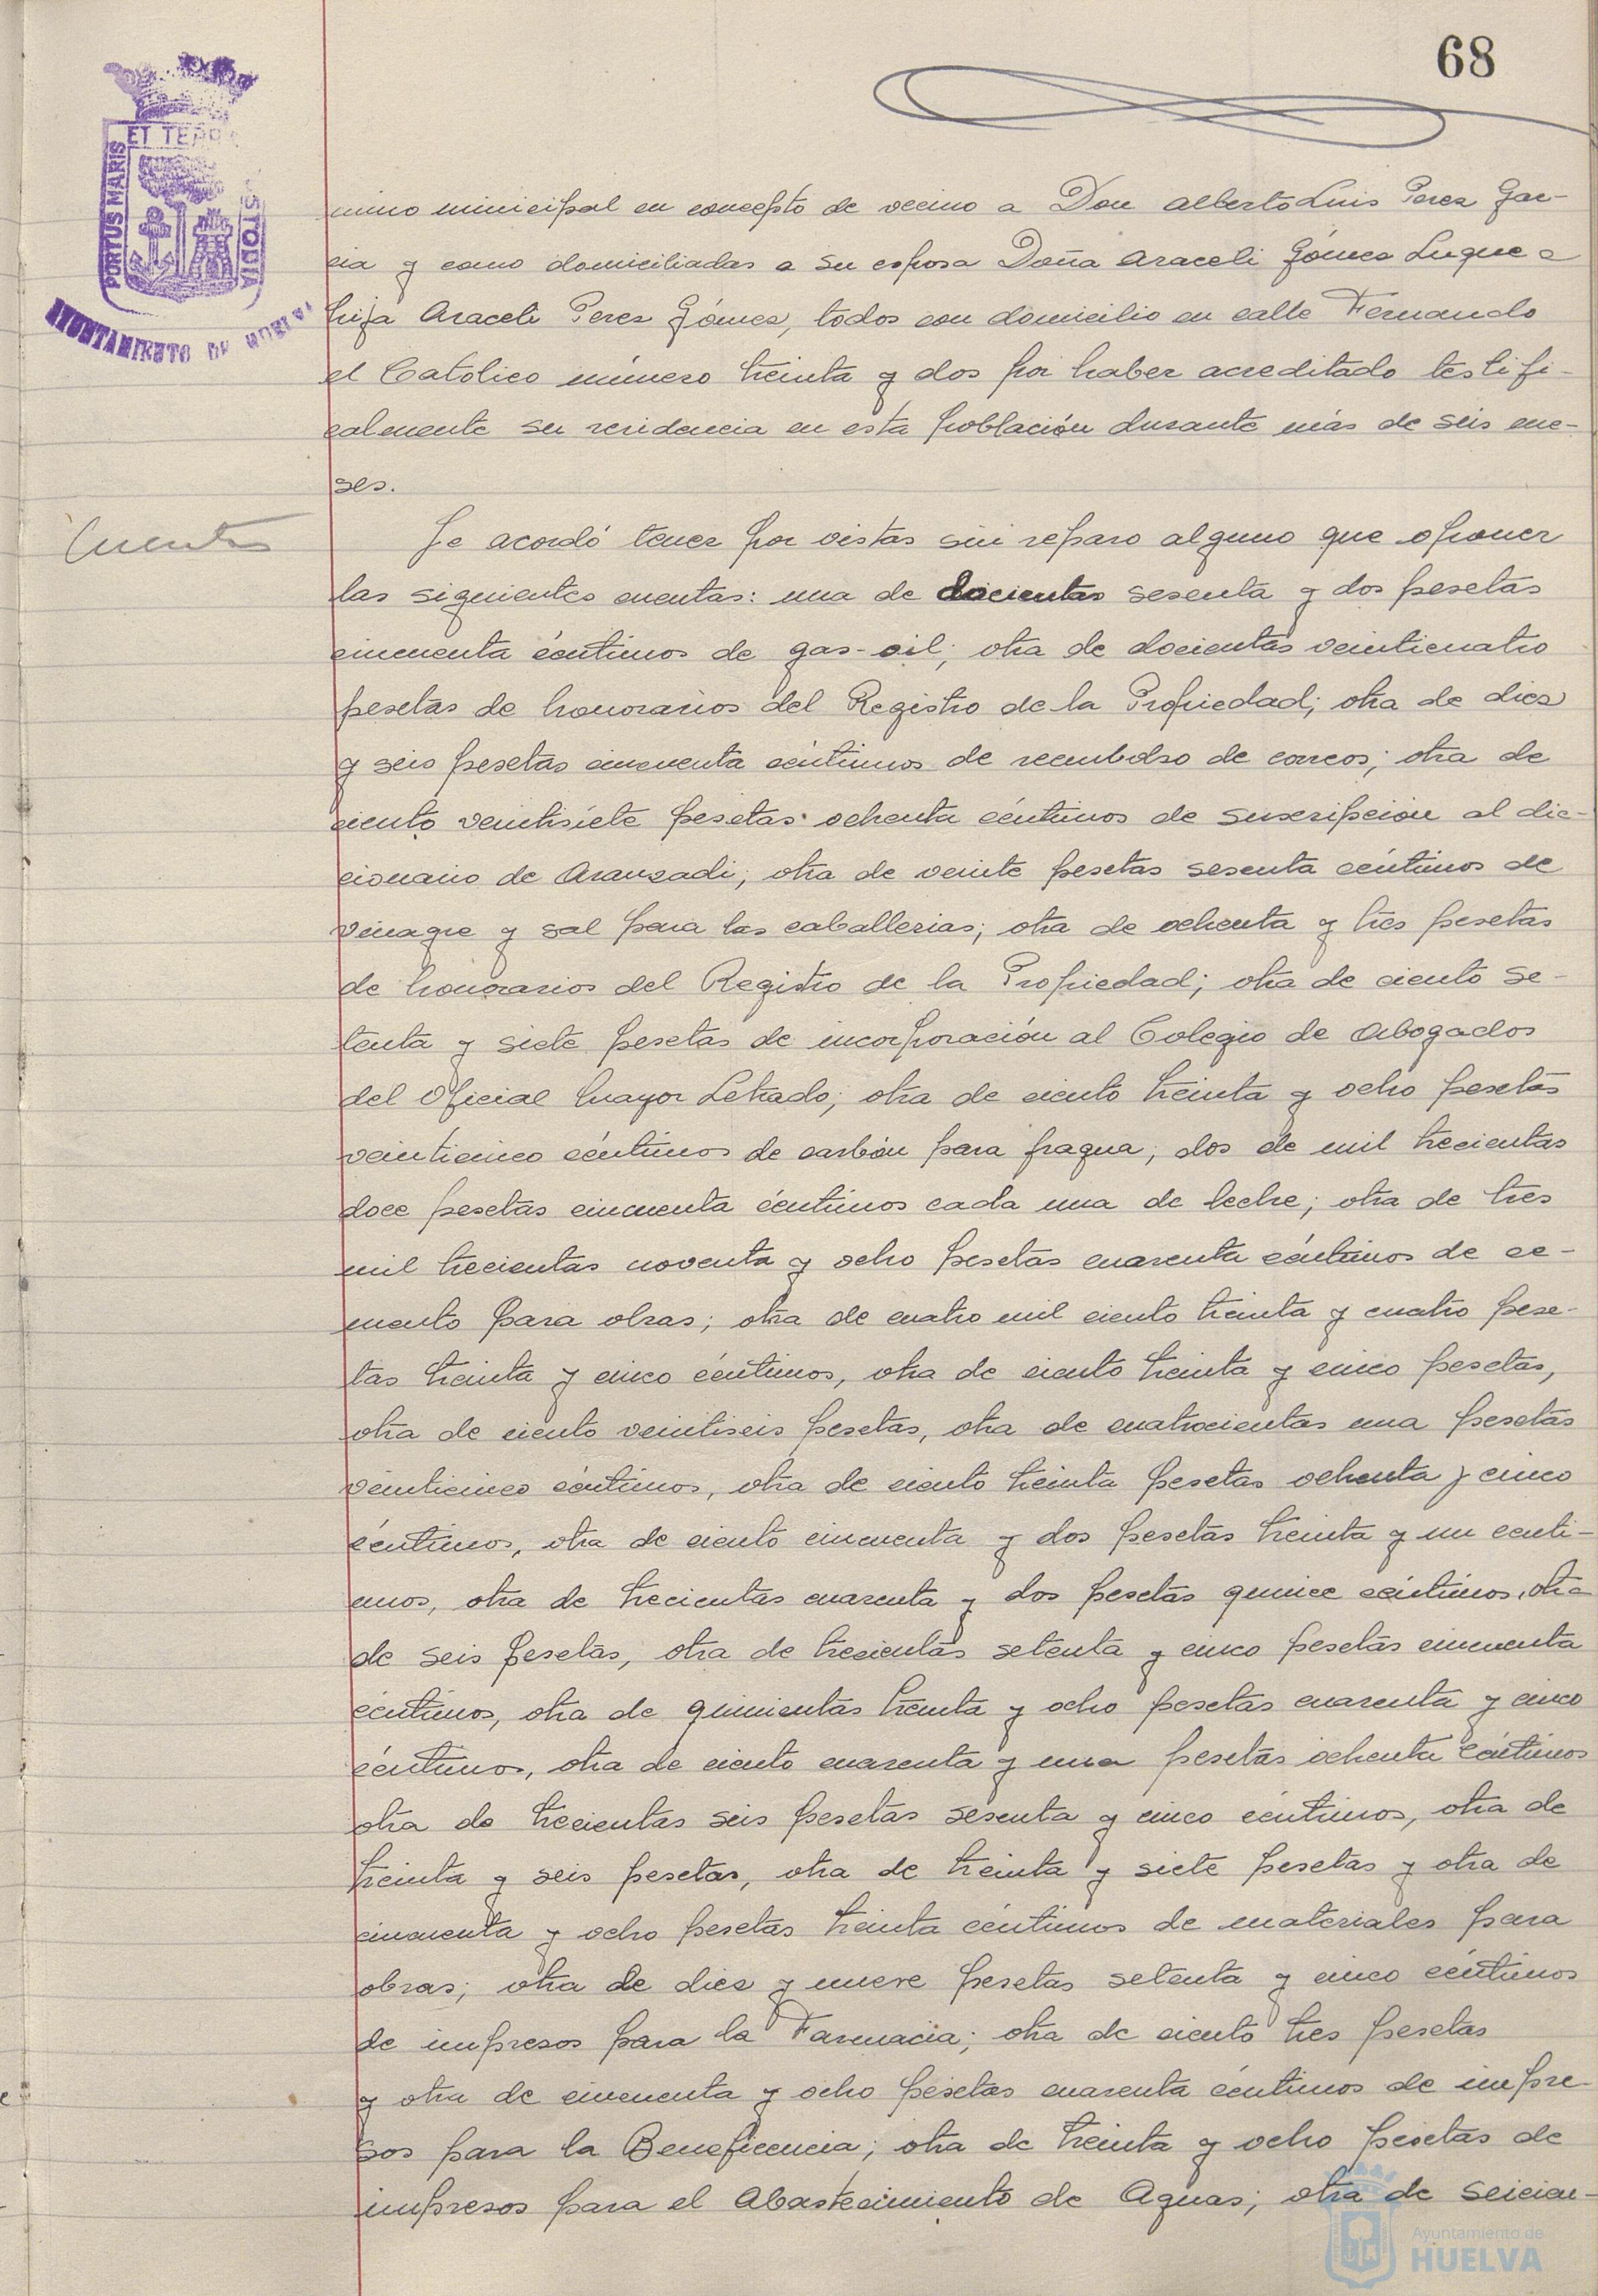 68
ET TERR
PORTUS MARIS
STODIA
AYUNTAMIENTO DE HUELVA
mino municipal en concepto de vecino a Don Alberto Luis Perez Gar-
cia y como domiciliadas a su esposa Doña Araceli Gómez Luque e
hija Araceli Perez Gómez, todos con domicilio en calle Fernando
el Catolico número treinta y dos por haber acreditado testifi-
calmente su residencia en esta población durante más de seis me-
ses.
Cuentas
Se acordó tener por vistas sin reparo alguno que oponer
las siguientes cuentas: una de docientas sesenta y dos pesetas
cincuenta céntimos de gas-oil; otra de docientas veinticuatro
pesetas de honorarios del Registro de la Propiedad; otra de diez
y seis pesetas cincuenta céntimos de reembolso de correos; otra de
ciento veintisiete pesetas ochenta céntimos de suscripción al dic-
cionario de Aranzadi; otra de veinte pesetas sesenta céntimos de
vinagre y sal para las caballerias; otra de ochenta y tres pesetas
de honorarios del Registro de la Propiedad; otra de ciento se-
tenta y siete pesetas de incorporación al Colegio de Abogados
del Oficial Mayor Letrado; otra de ciento treinta y ocho pesetas
veinticinco céntimos de carbón para fragua; dos de mil trecientas
doce pesetas cincuenta céntimos cada una de leche; otra de tres
mil trecientas noventa y ocho pesetas cuarenta céntimos de ce-
mento para obras; otra de cuatro mil ciento treinta y cuatro pese-
tas treinta y cinco céntimos, otra de ciento treinta y cinco pesetas,
otra de ciento veintiseis pesetas, otra de cuatrocientas una pesetas
veinticinco céntimos, otra de ciento treinta pesetas ochenta y cinco
céntimos, otra de ciento cincuenta y dos pesetas treinta y un centi-
mos, otra de trecientas cuarenta y dos pesetas quince céntimos, otra
de seis pesetas, otra de trecientas setenta y cinco pesetas cincuenta
céntimos, otra de quinientas treinta y ocho pesetas cuarenta y cinco
céntimos, otra de ciento cuarenta y una pesetas ochenta céntimos
otra de trecientas seis pesetas sesenta y cinco céntimos, otra de
treinta y seis pesetas, otra de treinta y siete pesetas y otra de
cincuenta y ocho pesetas treinta céntimos de materiales para
obras; otra de diez y nueve pesetas setenta y cinco céntimos
de impresos para la Farmacia; otra de ciento tres pesetas
y otra de cincuenta y ocho pesetas cuarenta céntimos de impre-
sos para la Beneficencia; otra de treinta y ocho pesetas de
impresos para el Abastecimiento de Aguas; otra de seicien-
Ayuntamiento de
HUELVA